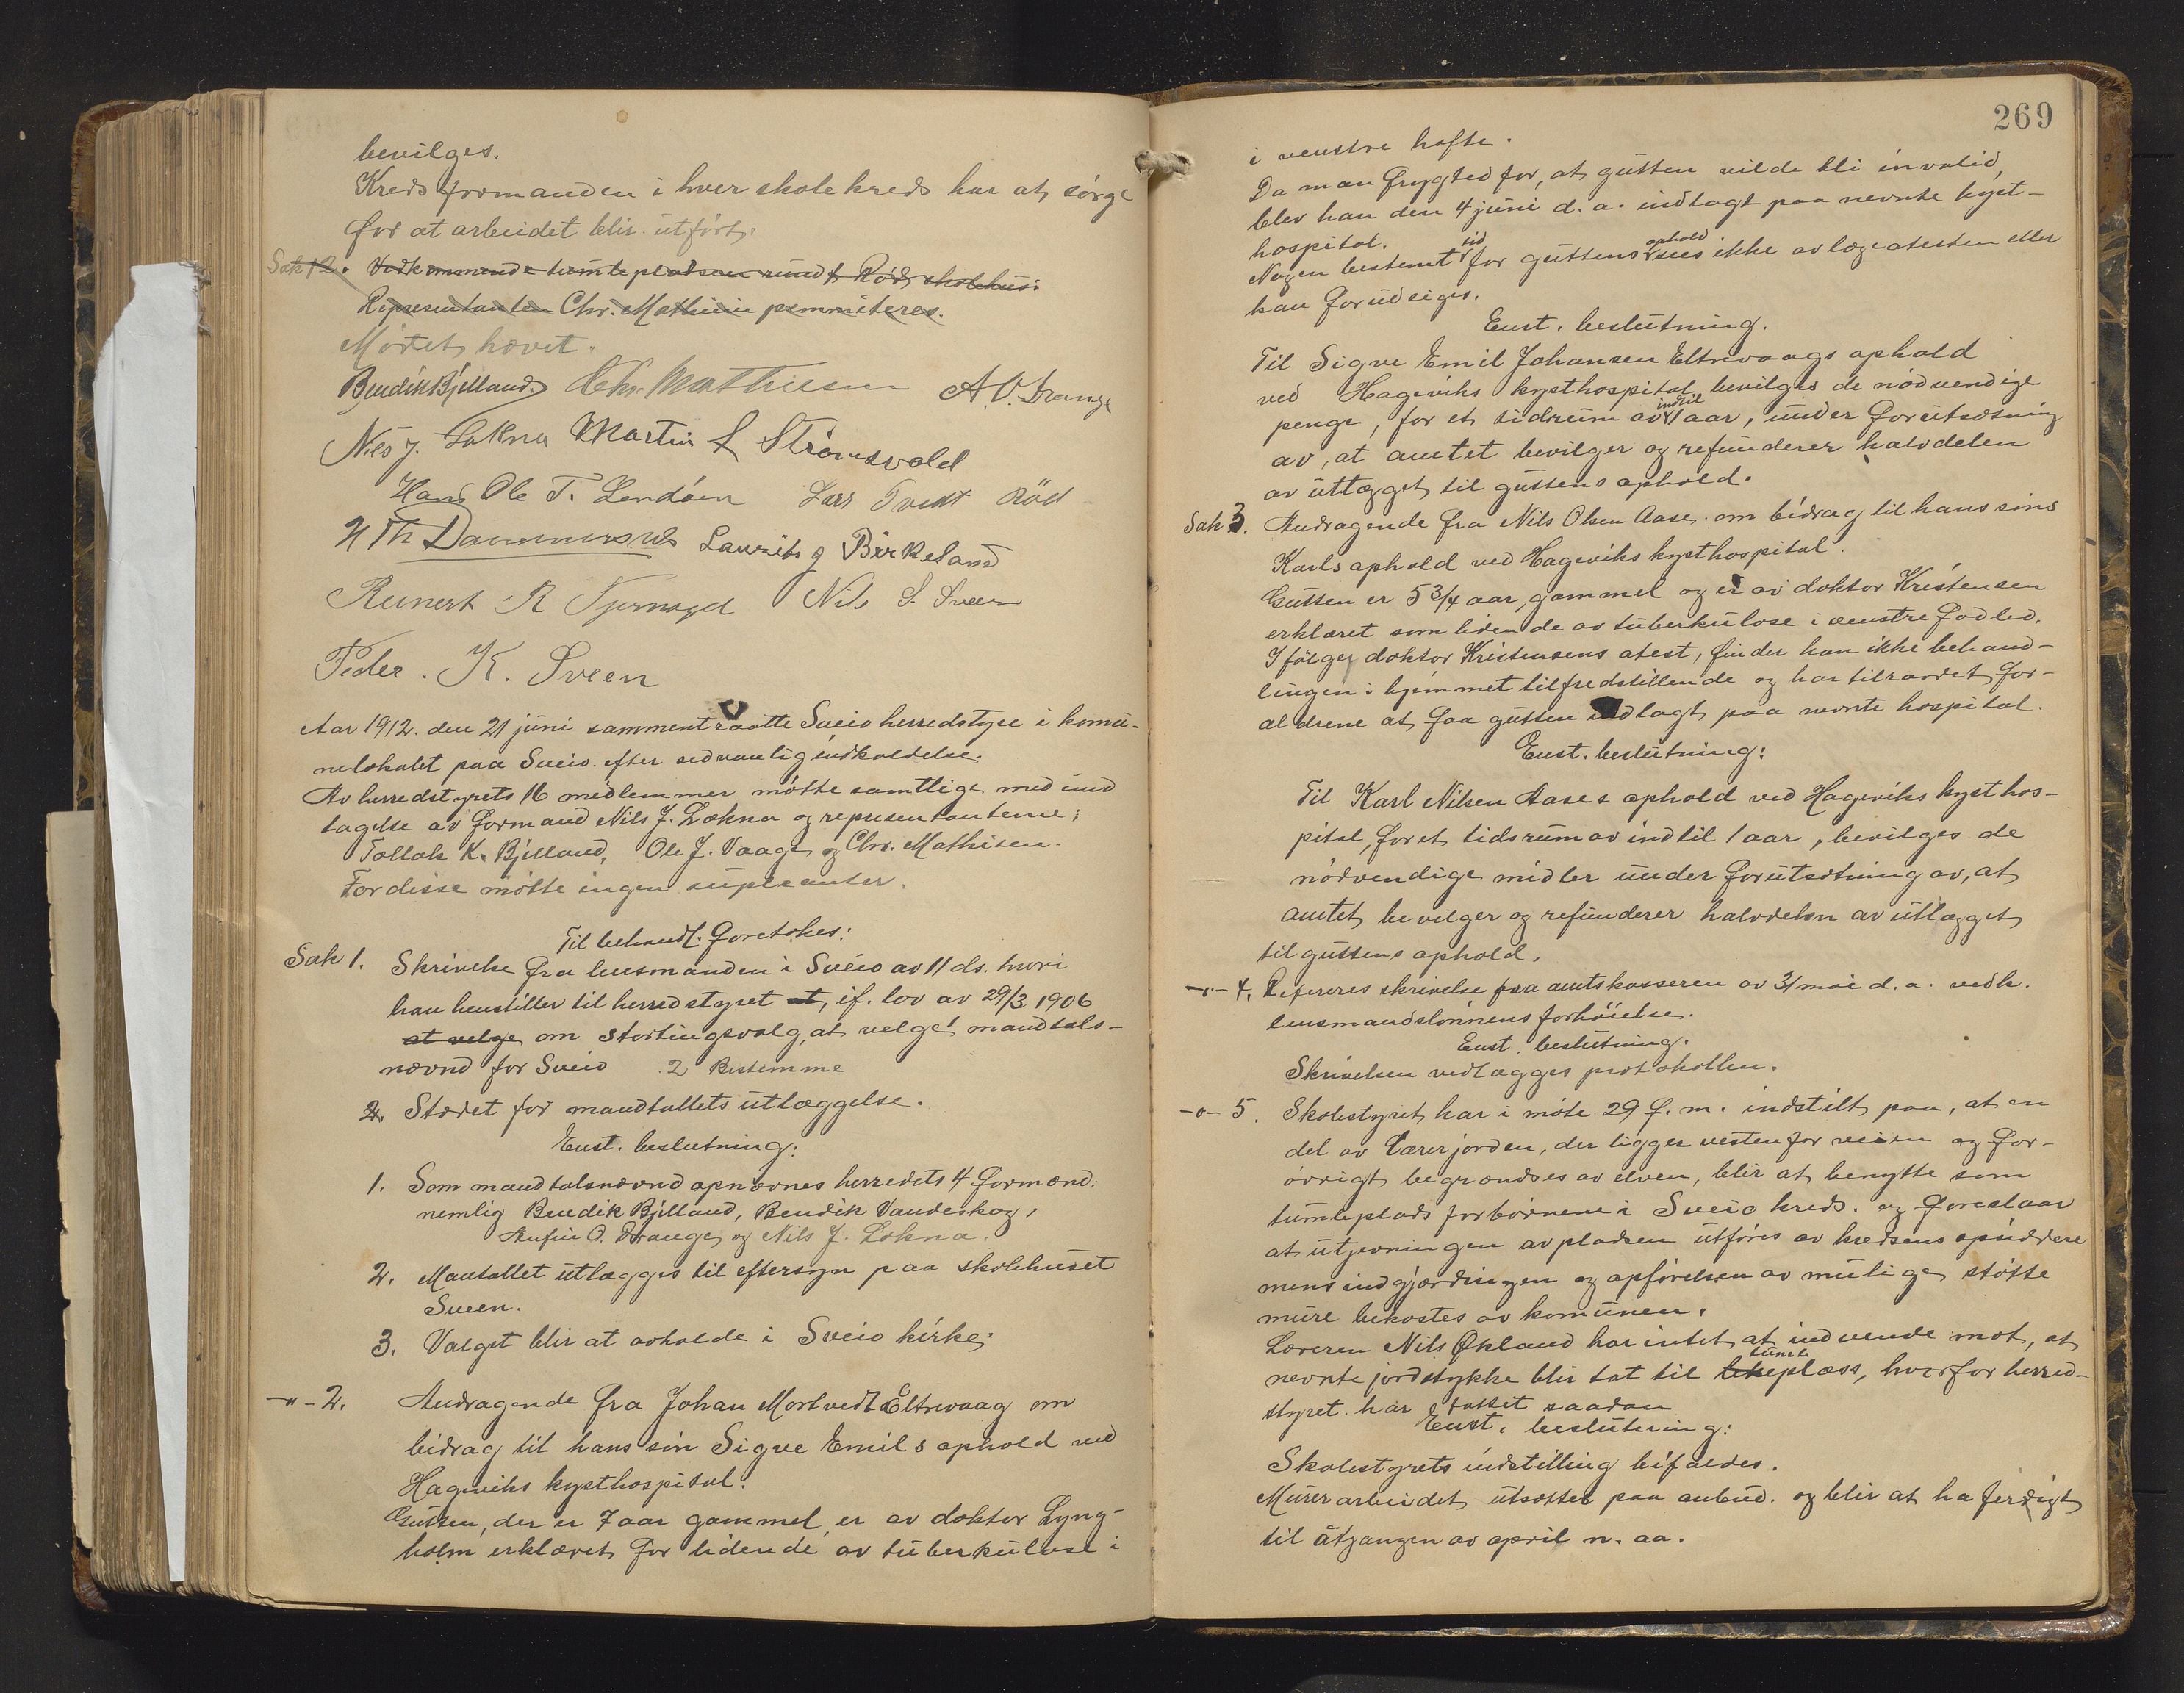 bevilges.
Kredsformanden i hver skolekreds har at sörge
for at arbeidet blir utfört.
Sak 12. Vedkommende tumlepladsen rundt Röds skolehus:
Representanten Chr. Mathisen permiteres.
Mötet hævet.
Bendik Bjelland. Chr. Mathiesen A. O. Drange
Nils J. Løkna Martin L Strømsvold
Hans Ole T. Lendöen Lars Tveit Röd
Laurits J Birkeland
Reinert R Tjernagel Nils S. Sveen
Peder. K. Sveen
Aar 1912. den 21 juni sammentraatte Sveio herredstyre i komu-
nelokalet paa Sveio efter sedvanlig indkaldelse.
Av herredstyrets 16 medlemmer mötte samtlige med und
tagelse av formand Nils J. Lökna og representanterne;
Tollak K. Bjelland, Ole J. Vaage og Chr. Mathisen.
For disse mötte ingen supleanter.
Til behandl. foretokes:
Sak 1. Skrivelse fra lensmanden i Sveio av 11 ds. hvori
han henstiller til herredstyret at, if. lov av 29/3 1906
at velge om stortingsvalg, at velge 1 mandtals-
nævnd for Sveio 2 Bestemme
2. Stedet for mandtallets utlæggelse.
Enst. beslutning:
1. Som mandtalsnævnd opnævnes herredets 4 formænd.
nemlig Bendik Bjelland, Bendik Vandeskog,
Anfin O. Drange, og Nils J. Lökna.
2. Mantallet utlægges til eftersyn paa skolehuset
Sveen.
3. Valget blir at avholde i Sveio kirke.
-"- 2. Andragende fra Johan Mortvedt Eltrevaag om
bidrag til hans sön Sigve Emils ophold ved
Hageviks kysthospital.
Gutten, der er 7 aar gammel er av doktor Lyng-
holm erklæret for lidende av tuberkulose i
269
i venstre hofte.
Da man frygted for, at gutten vilde bli invalid,
blev han den 4 juni d. a. indlagt paa nevnte kyst-
hospital.
Nogen bestemt tid for guttens ophold sees ikke av lægeatesten eller
kan forudsiges.
Enst. beslutning.
Til Sigve Emil Johansen Eltrevaags ophold
ved Hageviks kysthospital bevilges de nödvendige
penge, for et tidsrum av indtil 1 aar, under forutsætning
av, at amtet bevilger og refunderer halvdelen
av utlægget til guttens ophold.
Sak 3. Andragende fra Nils Olsen Aase om bidrag til hans söns
Karls ophold ved Hageviks kysthospital.
Gutten er 5 3/4 aar gammel og er av doktor Kristensen
erklæret som lidende av tuberkulose i venstre fodled.
Ifölge doktor Kristensens atest, finder han ikke behand-
lingen i hjemmet tilfredstillende og har tilraadet for-
ældrene at faa gutten indlagt paa nevnte hospital.
Enst. beslutning:
Til Karl Nilsen Aases ophold ved Hageviks kysthos-
pital, for et tidsrum av indtil 1 aar, bevilges de
nödvendige midler under forutsætning av, at
amtet bevilger og refunderer halvdelen av utlægget
til guttens ophold.
-"- 4. Refereres skrivelse fra amtskasseren av 31 mai d. a. vedk.
lensmandslönnens forhöielse.
Enst. beslutning.
Skrivelsen vedlægges protokollen.
-"- 5. Skolestyret har i möte 29 f. m. indstilt paa, at en
del av Lærerjorden, der ligger vestenfor veien og for-
övrigt begrændses av elven, blir at benytte som
tumleplads for börnene i Sveio kreds. og foreslaar
at utjevningen av pladsen utföres av kredsens opsiddere
mens indgjærdingen og opförelsen av mulige stötte
mure bekostes av komunen.
Læreren Nils Økland har intet at indvende mot, at
nevnte jordstykke blir tat til lekeplass, tumle hvorfor herred-
styret har fattet saadan
Enst. beslutning:
Skolestyrets indstilling bifaldes.
Murerarbeidet utsættes paa anbud. og blir at ha ferdigt
til utgangen av april n. aa.